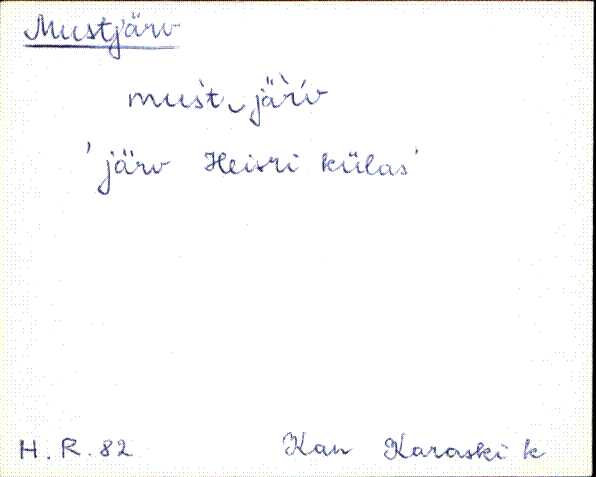 Mustjärv
mus̀t‿jär̀v
'järv Heisri külas'
H. R. 82 Kan Karaski k